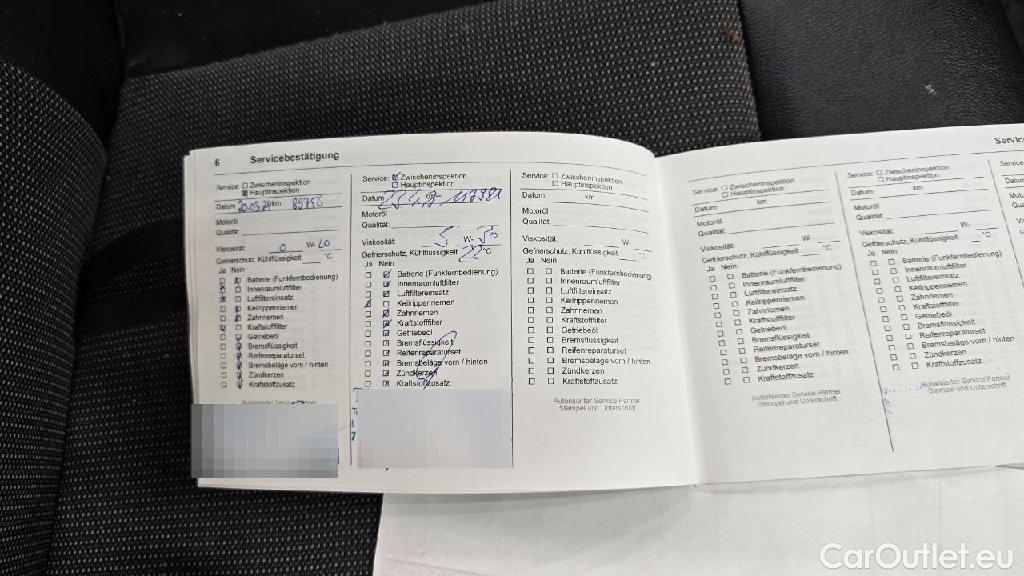 6 Servicebestätigung
Service: Zwischeninspektion
Hauptinspektion
Datum 20.03.24 km
Motoröl
Qualität:
Viskosität 0 W- 20
Gefrierschutz, Kühlflüssigkeit °C
Ja Nein
Batterie (Funkfernbedienung)
Innenraumluftfilter
Luftfiltereinsatz
Keilrippenriemen
Zahnriemen
Kraftstofffilter
Getriebeöl
Bremsflüssigkeit
Reifenreparaturset
Bremsbeläge vorn / hinten
Zündkerzen
Kraftstoffzusatz
Autorisierter Service Partner
Service: Zwischeninspektion
Hauptinspektion
Datum
Motoröl
Qualität:
Viskosität: 5 W- 30
Gefrierschutz, Kühlflüssigkeit °C
Ja Nein
Batterie (Funkfernbedienung)
Innenraumluftfilter
Luftfiltereinsatz
Keilrippenriemen
Zahnriemen
Kraftstofffilter
Getriebeöl
Bremsflüssigkeit
Reifenreparaturset
Bremsbeläge vorn / hinten
Zündkerzen
Kraftstoffzusatz
Service: Zwischeninspektion
Hauptinspektion
Datum km
Motoröl
Qualität:
Viskosität: W-
Gefrierschutz, Kühlflüssigkeit °C
Ja Nein
Batterie (Funkfernbedienung)
Innenraumluftfilter
Luftfiltereinsatz
Keilrippenriemen
Zahnriemen
Kraftstofffilter
Getriebeöl
Bremsflüssigkeit
Reifenreparaturset
Bremsbeläge vorn / hinten
Zündkerzen
Kraftstoffzusatz
Autorisierter Service Partner
Stempel und Unterschrift
Service: Zwischeninspektion
Hauptinspektion
Datum km
Motoröl
Qualität:
Viskosität: W-
Gefrierschutz, Kühlflüssigkeit °C
Ja Nein
Batterie (Funkfernbedienung)
Innenraumluftfilter
Luftfiltereinsatz
Keilrippenriemen
Zahnriemen
Kraftstofffilter
Getriebeöl
Bremsflüssigkeit
Reifenreparaturset
Bremsbeläge vorn / hinten
Zündkerzen
Kraftstoffzusatz
Autorisierter Service Partner
Stempel und Unterschrift
Service: Zwischeninspektion
Hauptinspektion
Datum km
Motoröl
Qualität:
Viskosität: W-
Gefrierschutz, Kühlflüssigkeit °C
Ja Nein
Batterie (Funkfernbedienung)
Innenraumluftfilter
Luftfiltereinsatz
Keilrippenriemen
Zahnriemen
Kraftstofffilter
Getriebeöl
Bremsflüssigkeit
Reifenreparaturset
Bremsbeläge vorn / hinten
Zündkerzen
Kraftstoffzusatz
Autorisierter Service Partner
Stempel und Unterschrift
CarOutlet.eu